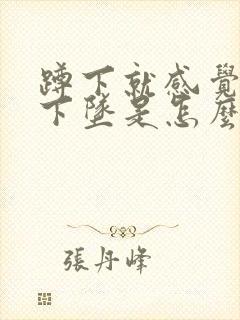 蹲下就感覺
下墜是怎麼
張丹峰